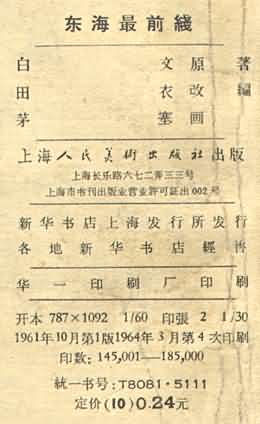 东海最前綫
白文原著
田衣改編
茅塞画
上海人民美術出版社出版
上海长乐路六七二弄三三号
上海市书刊出版业营业許可証出002号
新华书店上海发行所发行
各地新华书店經售
华一印刷厂印刷
开本787×1092 1/60 印張 2 1/30
1961年10月第1版1964年3月第4次印刷
印数：145,001—185,000
統一书号：T8081·5111
定价(10)0.24元